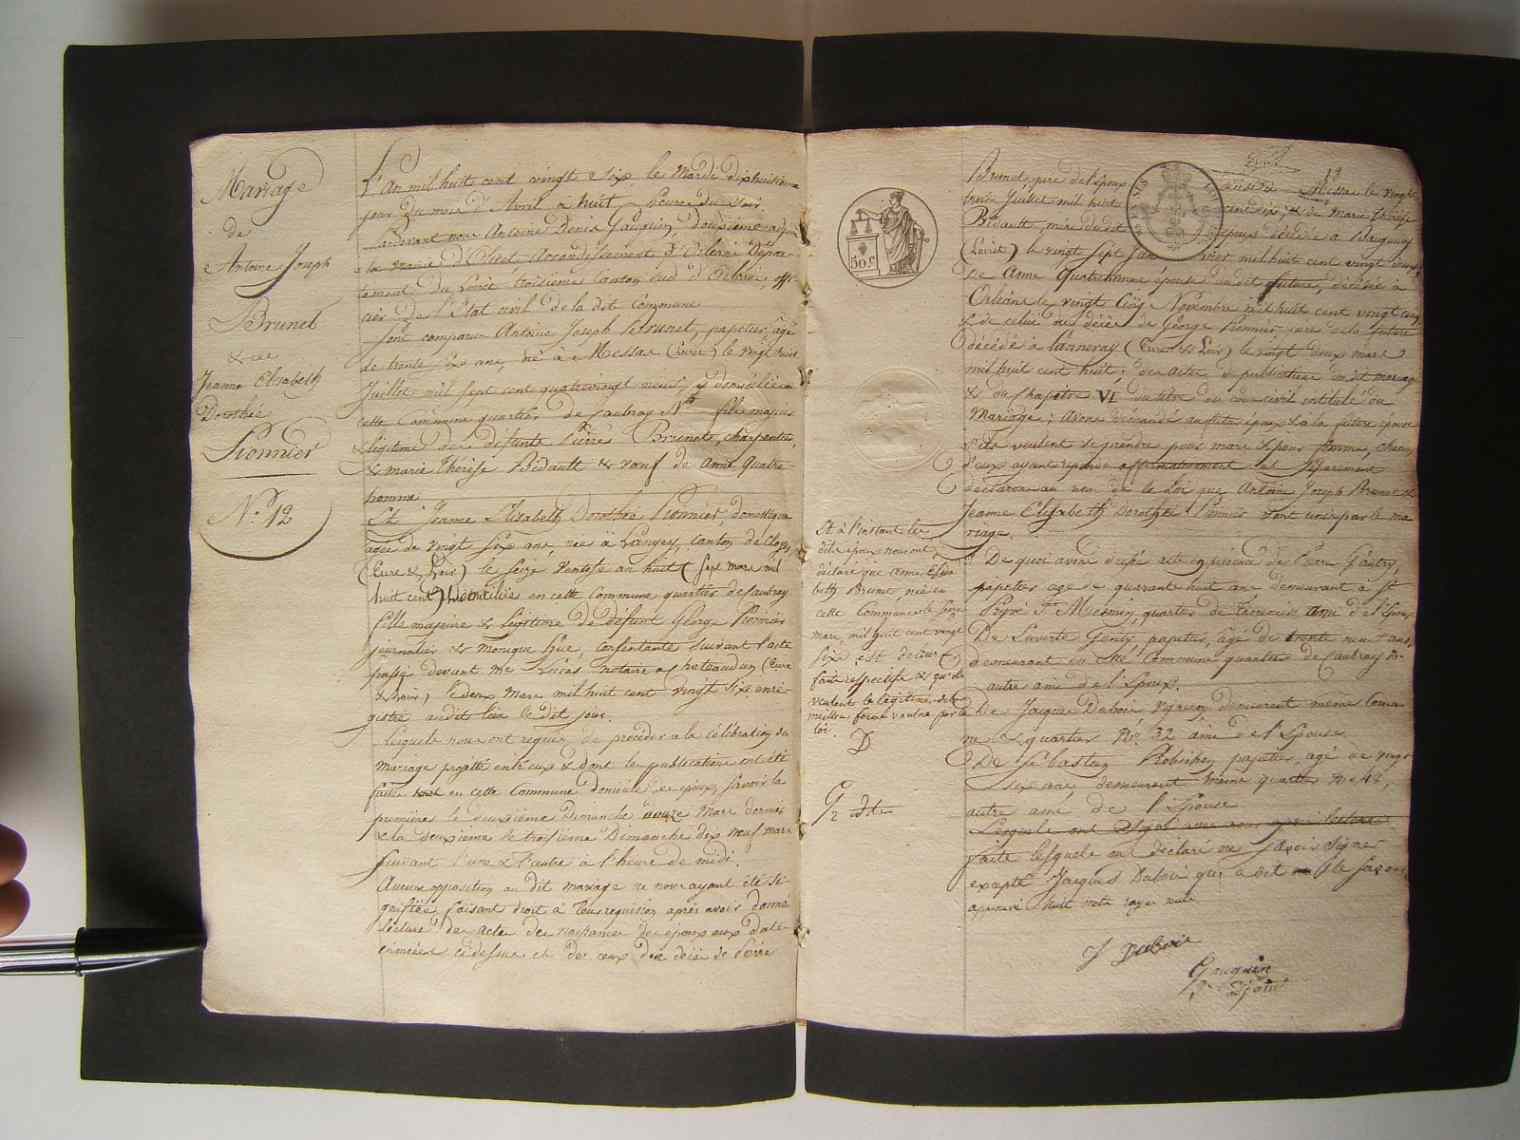 Mariage
de
Antoine Joseph
Brunet
& de
Jeanne Elisabeth
Dorothée
Pionnier
N.º 12
L'An mil huit cent vingt six le Mardi dixhuitieme
jour du mois d'Avril a huit heures du soir
Pardevant nous Antoine Denis Gauguin, deuxième adj.
a la mairie d'Olivet Arrondissement d'Orléans Dépar-
tement du Loiret troisième Canton sud d'Orléans, offi-
cier de l'Etat civil de la dite Commune
sont comparus Antoine Joseph Brunet, papetier, agé
de trente six ans, né à Messas le vingt trois
Juillet mil sept cent quatrevingt neuf, y domicilié en
cette Commune quartier de Saubray N.º fils majeur
& légitime de défunts Pierre Brunet, charpentier,
& Marie Thérèse Bédault & veuf de Anne Quatre
homme
Et Jeanne Elisabeth Dorothée Pionnier, domestique
agée de vingt six ans, née à Langey, canton de Cloyes
(Eure & Loir) le seize Ventose an huit (sept mars mil
huit cent) domiciliée en cette commune quartier de Saubray
fille majeure & légitime de défunt George Pionnier
journalier & Monique Hüe, consentante suivant l'acte
passé devant Me Lucas notaire a Chateaudun (Eure
& Loir) le deux Mars mil huit cent vingt six enre-
gistré audit lieu le dit jour.
Lesquels nous ont requis de procéder a la célébration du
Mariage projetté entr'eux & dont les publications ont été
faites en cette Commune domicile des époux, savoir la
première le deuxième Dimanche douze Mars dernier
& la deuxième le troisième Dimanche dix neuf mars
suivant l'une & l'autre à l'heure de midi.
Aucune opposition au dit mariage ne nous ayant été si-
gnifiée, faisant droit à leur requisition après avoir donné
lecture des actes de naissances des époux aux dates
énoncées ci dessus et de ceux des décès de Pierre
50 c
Brunet, père de l'époux Messas le vingt
trois Juillet mil huit & de Marie Thérèse
Bédault, mère du dit époux décédée a
(Loiret) le vingt sept mil huit cent vingt
de Anne Quatrehomme épouse du dit futur, décédée à
Orléans le vingt Cinq Novembre mil huit cent vingt cinq
& de celui du décès de George Pionnier père de la future
décédé à Lanneray (Eure & Loir) le vingt deux mars
mil huit cent huit; des actes de publication du dit mariage
& du Chapitre VI du titre du code civil intitulé du
Mariage; avons demandé au futur époux & a la future épouse
s'ils veulent se prendre pour mari & pour femme, chacun
d'eux ayant répondu affirmativement & séparément
déclarons au nom de la Loi que Antoine Joseph Brunet &
Jeanne Elisabeth Dorothée Pionnier sont unis par le ma-
riage.
De quoi avons dressé acte en présence de Pierre Gautry,
papetier agé de quarante huit ans demeurant à St
Privé St Mesmin, quartier de ami de l'époux,
De Laurent Genty papetier, agé de trente neuf ans,
demeurant en cette commune quartier de Saubray
autre ami de l'époux.
De Jacques Dubois vigneron demeurant même Commu-
ne & quartier N.º 32 ami de l'Epouse
De Sébastien papetier, agé de vingt
six ans, demeurant même quartier N.º 48,
autre ami de l'Epouse
Lesquels ont signé avec nous après lecture
faite lesquels ont déclaré ne savoir signer
excepté Jacques Dubois qui a dit le savoir
approuvé huit mots rayés nuls
Et à l'instant les
dits époux nous ont
déclaré que Anne Elisa
beth Brunet née en
cette Commune le
mars, mil huit cent vingt
six est de leur
fait respectif & qu'ils
veulent la légitimer
par la
loi.
D
J Dubois
Gauguin
Adjoint